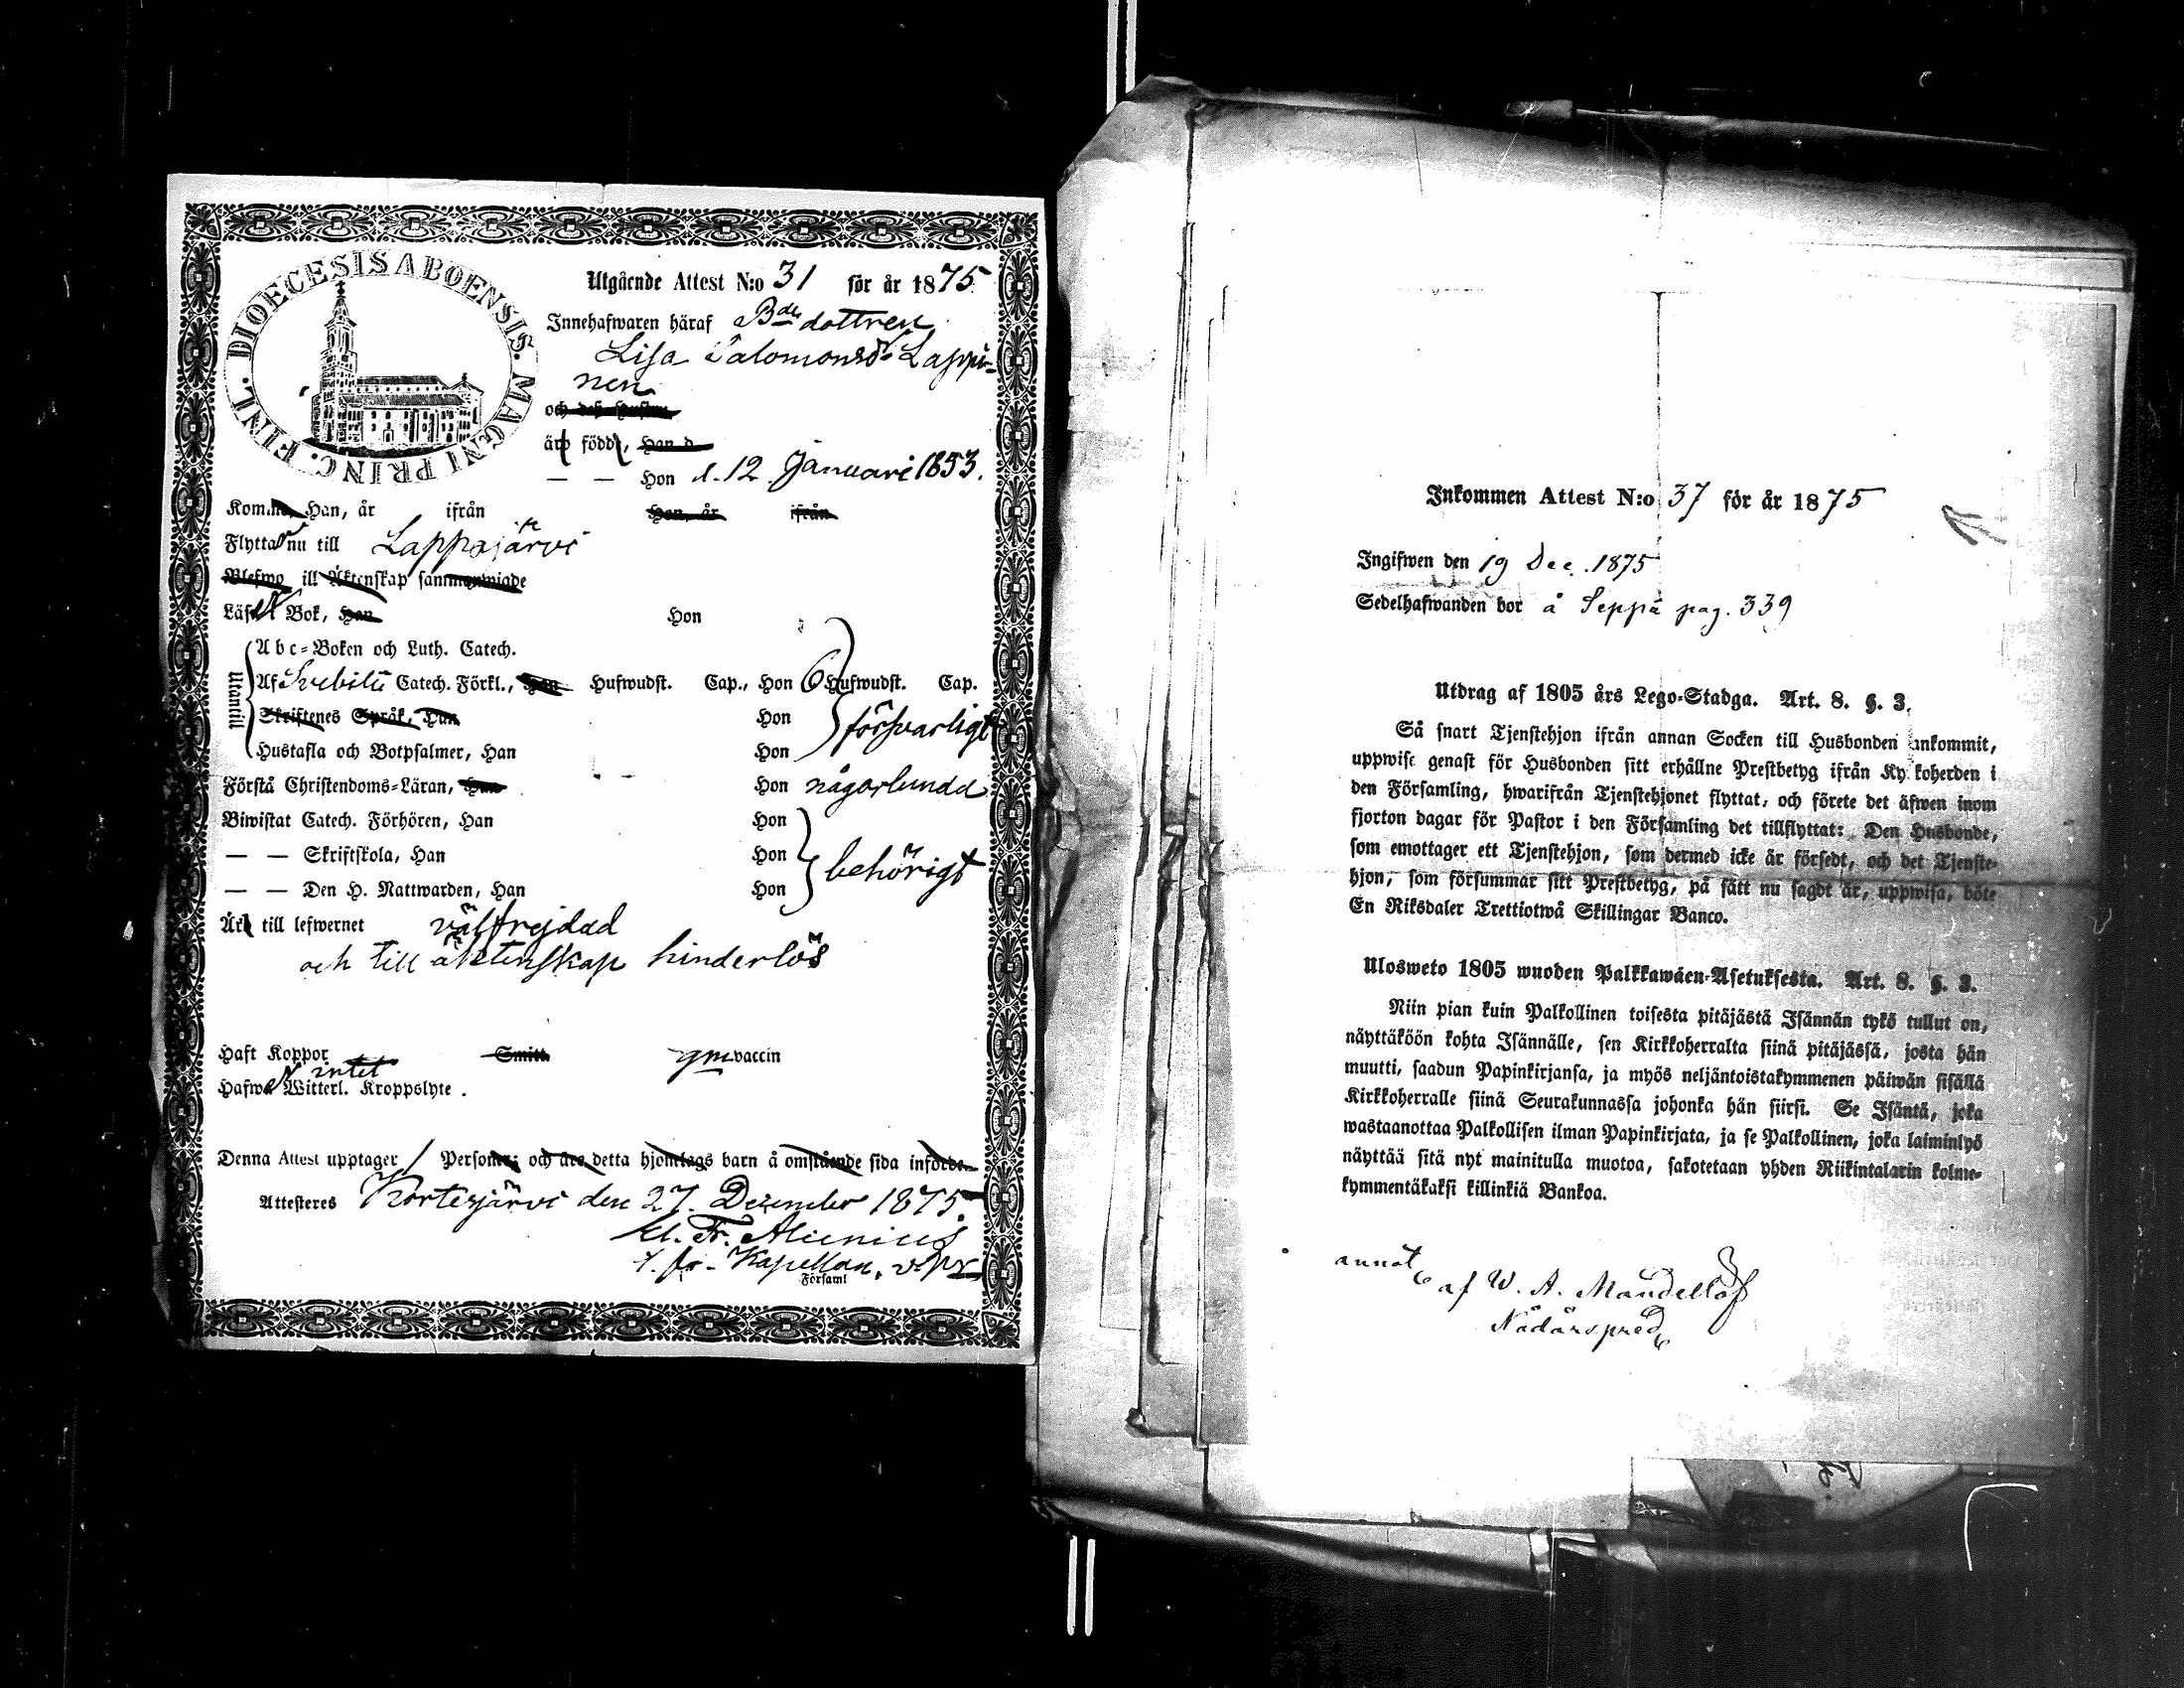 DIOECESIS ABOENSIS. MAGNI PRINC. FINL.
Utgående Attest N:o 31 för år 1875.
Innehafwaren häraf Bde dottren
Lisa Salomonsdr Lappi-
nen
och deß hustru
äro född,
Han d.
— — Hon d. 12 Januari 1853.
Komme Han, år ifrån Hon, år ifrån
Flyttar nu till Lappajärvi
Blefwo ill Äktenskap sammanwigde
Läser i Bok, Han Hon
Utantill
Abc-Boken och Luth. Catech.
Af Svebilii Catech. Förkl., Han Hufwudst. Cap., Hon 6 Hufwudst. Cap.
Skriftenes Språk, Han Hon försvarligt
Hustafla och Botpsalmer, Han Hon
Förstå Christendoms-Läran, Han Hon någorlunda
Biwistat Catech. Förhören, Han Hon
— — Skriftskola, Han Hon behörigt
— — Den H. Nattwarden, Han Hon
Är till lefwernet välfrejdad
och till äktenskap hinderlös
Haft Koppor Smitt. gm vaccin
intet
Hafwa Witterl. Kroppslyte .
Denna Attest upptager 1 Personer; och äro detta hjonelags barn å omstående sida införde.
Attesteres Kortesjärvi den 27. Dezember 1875.
Kapellan, v. Pr
Församl
Inkommen Attest N:o 37 för år 1875
Ingifwen den 19 Dec. 1875
Sedelhafwanden bor å Seppä pag. 339
Utdrag af 1805 års Lego-Stadga. Art. 8. §. 3.
Så snart Tjenstehjon ifrån annan Socken till Husbonden ankommit,
uppwise genast för Husbonden sitt erhållne Prestbetyg ifrån Kyrkoherden i
den Församling, hwarifrån Tjenstehjonet flyttat, och förete det äfwen inom
fjorton dagar för Pastor i den Församling det tillflyttat: Den Husbonde,
som emottager ett Tjenstehjon, som dermed icke är försedt, och det Tjenste-
hjon, som försummar sitt Prestbetyg, på sätt nu sagdt är, uppwisa, böte
En Riksdaler Trettiotwå Skillingar Banco.
Ulosweto 1805 wuoden Palkkawäen-Asetuksesta. Art. 8. §. 3.
Niin pian kuin Palkollinen toisesta pitäjästä Isännän tykö tullut on,
näyttäköön kohta Isännälle, sen Kirkkoherralta siinä pitäjässä, josta hän
muutti, saadun Papinkirjansa, ja myös neljäntoistakymmenen päiwän sisällä
Kirkkoherralle siinä Seurakunnassa johonka hän siirsi. Se Isäntä, joka
wastaanottaa Palkollisen ilman Papinkirjata, ja se Palkollinen, joka laiminlyö
näyttää sitä nyt mainitulla muotoa, sakotetaan yhden Riikintalarin kolme-
kymmentäkaksi killinkiä Bankoa.
annot.
af W. A. Mandellöf
Nådårspred.